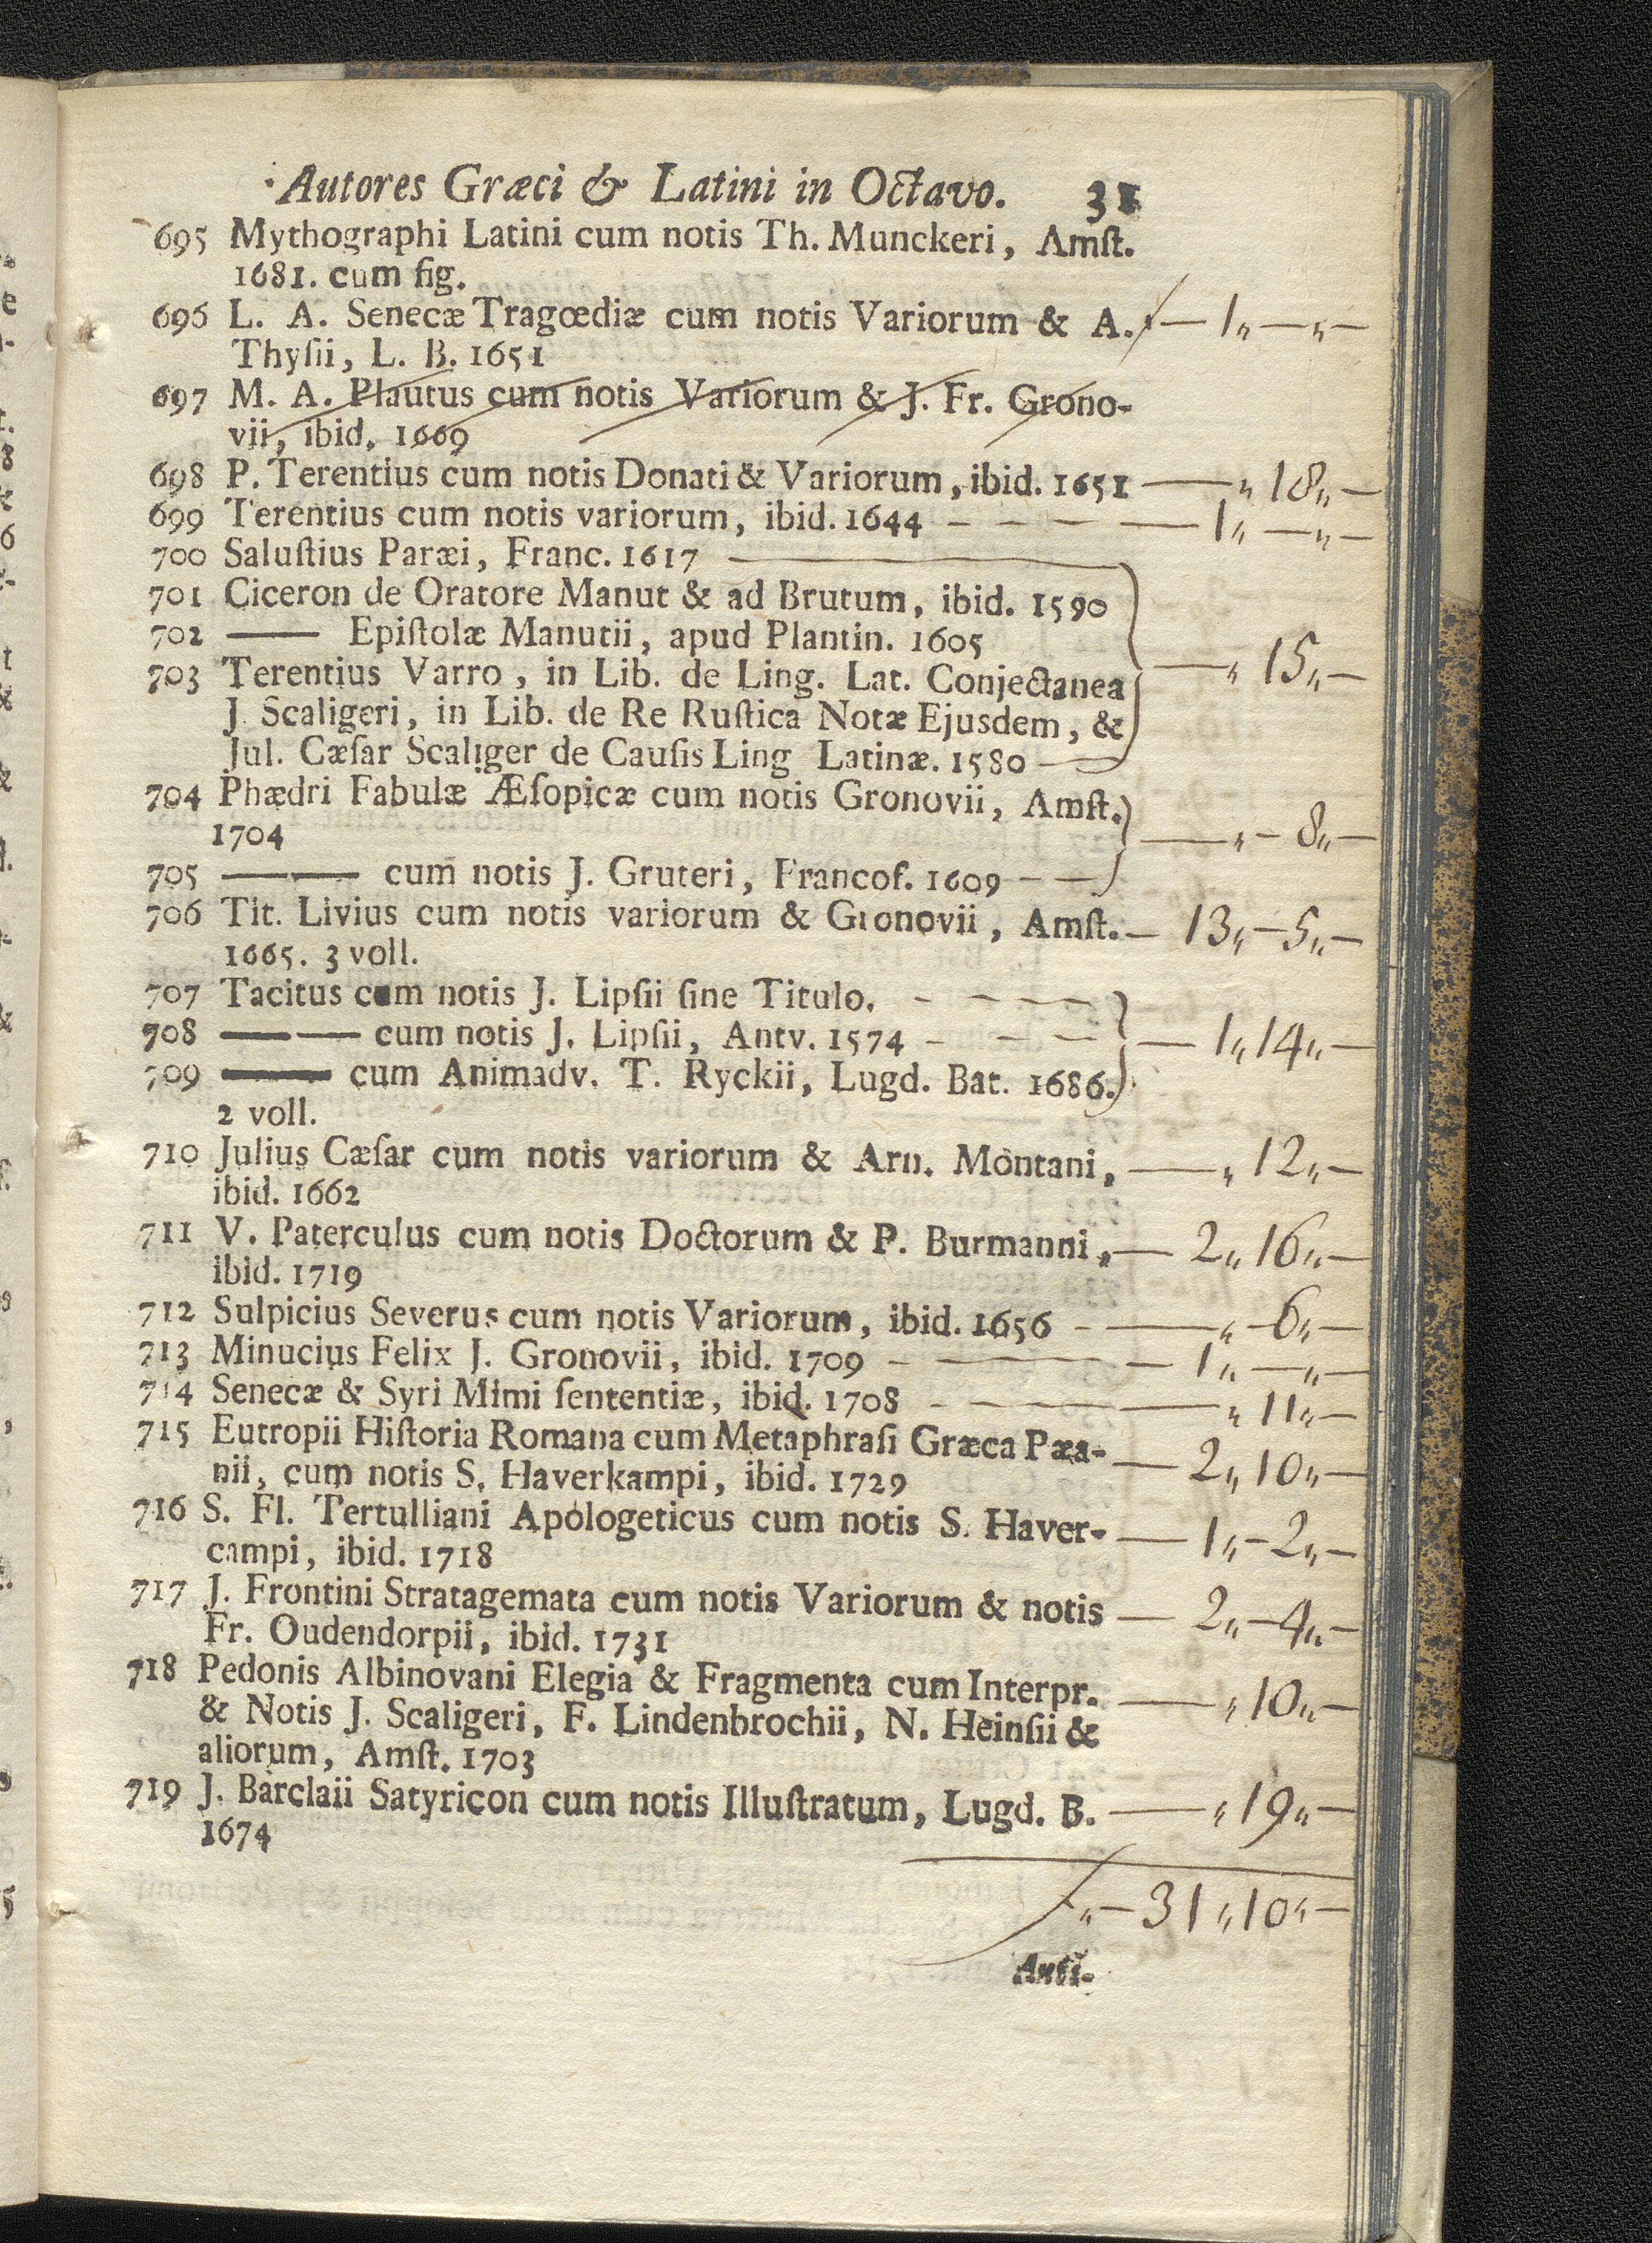 Autores Græci & Latini in Octavo. 31
695 Mythographi Latini cum notis Th. Munckeri, Amſt.
1681. cum fig.
696 L. A. Senecæ Tragœdiæ cum notis Variorum & A. ƒ — 1 „ — „ —
Thyſii, L. B. 1651
697 M. A. Plautus cum notis Variorum & J. Fr. Grono-
vii, ibid. 1669
698 P. Terentius cum notis Donati & Variorum, ibid. 1651 — „ 18 „ —
699 Terentius cum notis variorum, ibid. 1644 - - - — 1 „ — „ —
700 Saluſtius Paræi, Franc. 1617 —
701 Ciceron de Oratore Manut & ad Brutum, ibid. 1590
702 —— Epiſtolæ Manutii, apud Plantin. 1605
703 Terentius Varro, in Lib. de Ling. Lat. Conjectanea — „ 15 „ —
J. Scaligeri, in Lib. de Re Ruſtica Notæ Ejusdem, &
Jul. Cæſar Scaliger de Cauſis Ling Latinæ. 1580 —
704 Phædri Fabulæ Æſopicæ cum notis Gronovii, Amſt.
1704 — „ — 8 „ —
705 —— — cum notis J. Gruteri, Francof. 1609 - —
706 Tit. Livius cum notis variorum & Gronovii, Amſt. — 13 „ — 5 „ —
1665. 3 voll.
707 Tacitus cum notis J. Lipſii ſine Titulo. - - - -
708 —— — cum notis J. Lipſii, Antv. 1574 - - - - — 1 „ 14 „ —
709 —— cum Animadv. T. Ryckii, Lugd. Bat. 1686.
2 voll.
710 Julius Cæſar cum notis variorum & Arn. Montani, — „ 12 „ —
ibid. 1662
711 V. Paterculus cum notis Doctorum & P. Burmanni, — 2 „ 16 „ —
ibid. 1719
712 Sulpicius Severus cum notis Variorum, ibid. 1656 - — „ — 6 „ —
713 Minucius Felix J. Gronovii, ibid. 1709 - — — 1 „ — „ —
714 Senecæ & Syri Mimi ſententiæ, ibid. 1708 - - - — „ 11 „ —
715 Eutropii Hiſtoria Romana cum Metaphraſi Græca Pæa- — 2 „ 10 „ —
nii, cum notis S. Haverkampi, ibid. 1729
716 S. Fl. Tertulliani Apologeticus cum notis S. Haver- — 1 „ — 2 „ —
campi, ibid. 1718
717 J. Frontini Stratagemata cum notis Variorum & notis — 2 „ — 4 „ —
Fr. Oudendorpii, ibid. 1731
718 Pedonis Albinovani Elegia & Fragmenta cum Interpr. — „ 10 „ —
& Notis J. Scaligeri, F. Lindenbrochii, N. Heinſii &
aliorum, Amſt. 1703
719 J. Barclaii Satyricon cum notis Illuſtratum, Lugd. B. — „ 19 „ —
1674
ƒ „ — 31 „ 10 „ —